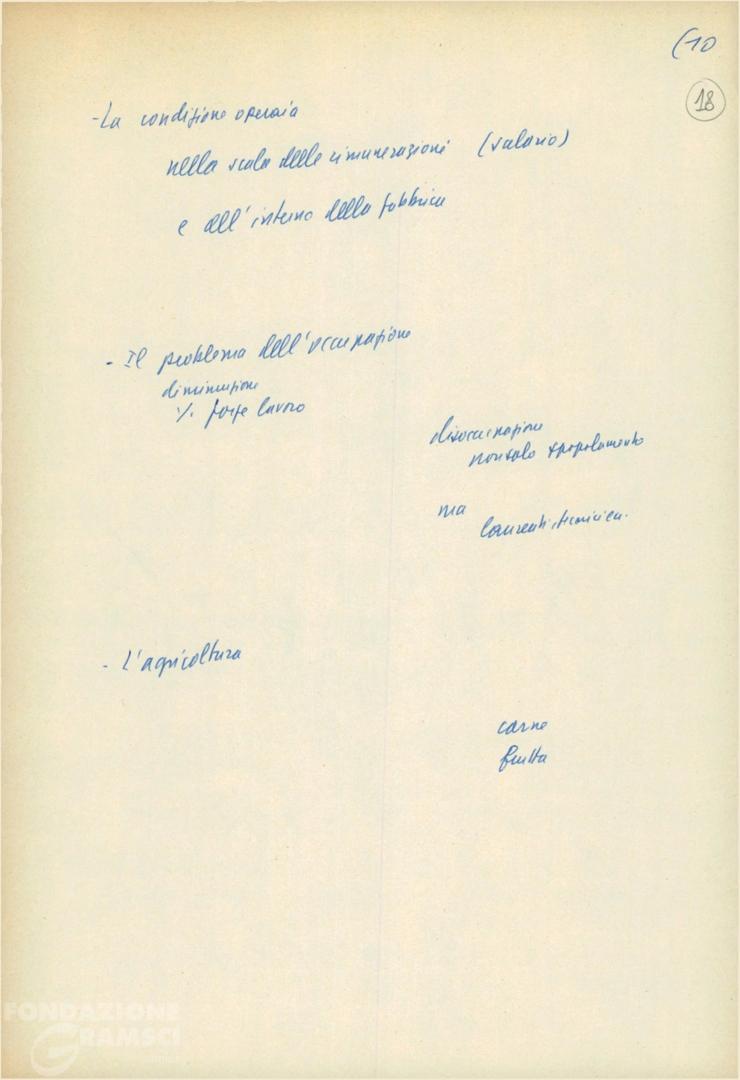 (10
18
- La condizione operaia
nella scala delle rimunerazioni (salario)
e all'interno della fabbrica
- Il problema dell'occupazione
diminuzione
% forze lavoro
disoccupazione
non solo spopolamento
ma
laureati, tecnici ecc.
- L'agricoltura
carne
frutta
FONDAZIONE
GRAMSCI